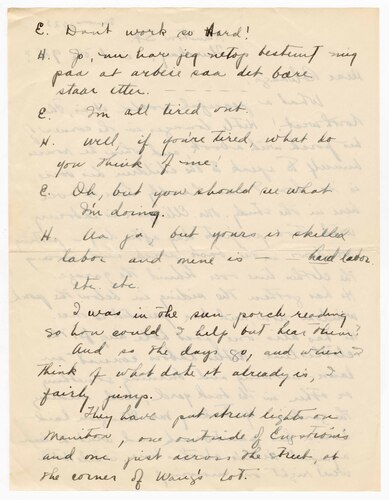 E. Don't work so Hard!
H. Jo, nu har jeg netop bestemt mig
paa at arbeie saa det bare
staar etter.
E. I'm all tired out.
H. Well, if you're tired, what do
you think of me!
E. Oh, but you should see what
I'm doing.
H. Aa ja, but yours is skilled
labor and mine is — hard labor
etc. etc.
I was in the sun porch reading
so how could I help but hear them?
And so the days go, and when I
think of what date it already is, I
fairly jump.
They have put street lights on
Manitou, one outside of Engstrom's
and one just across the street, at
the corner of Wang's lot.